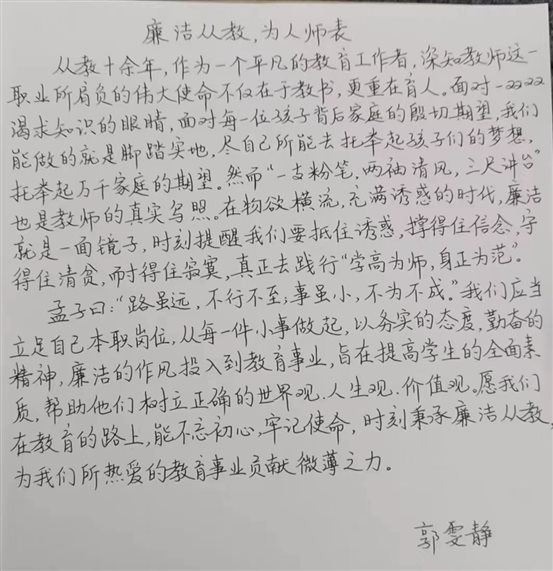 廉洁从教,为人师表
从教十余年,作为一个平凡的教育工作者,深知教师这一
职业所肩负的伟大使命不仅在于教书,更重在育人。面对一双双
渴求知识的眼睛,面对每一位孩子背后家庭的殷切期望,我们
能做的就是脚踏实地,尽自己所能去托举起孩子们的梦想,
托举起万千家庭的期望。然而“一支粉笔,两袖清风,三尺讲台”
也是教师的真实写照。在物欲横流,充满诱惑的时代,廉洁
就是一面镜子,时刻提醒我们要抵住诱惑,撑得住信念,守
得住清贫,耐得住寂寞,真正去践行“学高为师,身正为范”。
孟子曰:“路虽远,不行不至,事虽小,不为不成。”我们应当
立足自己本职岗位,从每一件小事做起,以务实的态度,勤奋的
精神,廉洁的作风投入到教育事业,旨在提高学生的全面素
质,帮助他们树立正确的世界观.人生观.价值观。愿我们
在教育的路上,能不忘初心,牢记使命,时刻秉承廉洁从教,
为我们所热爱的教育事业贡献微薄之力。
郭雯静